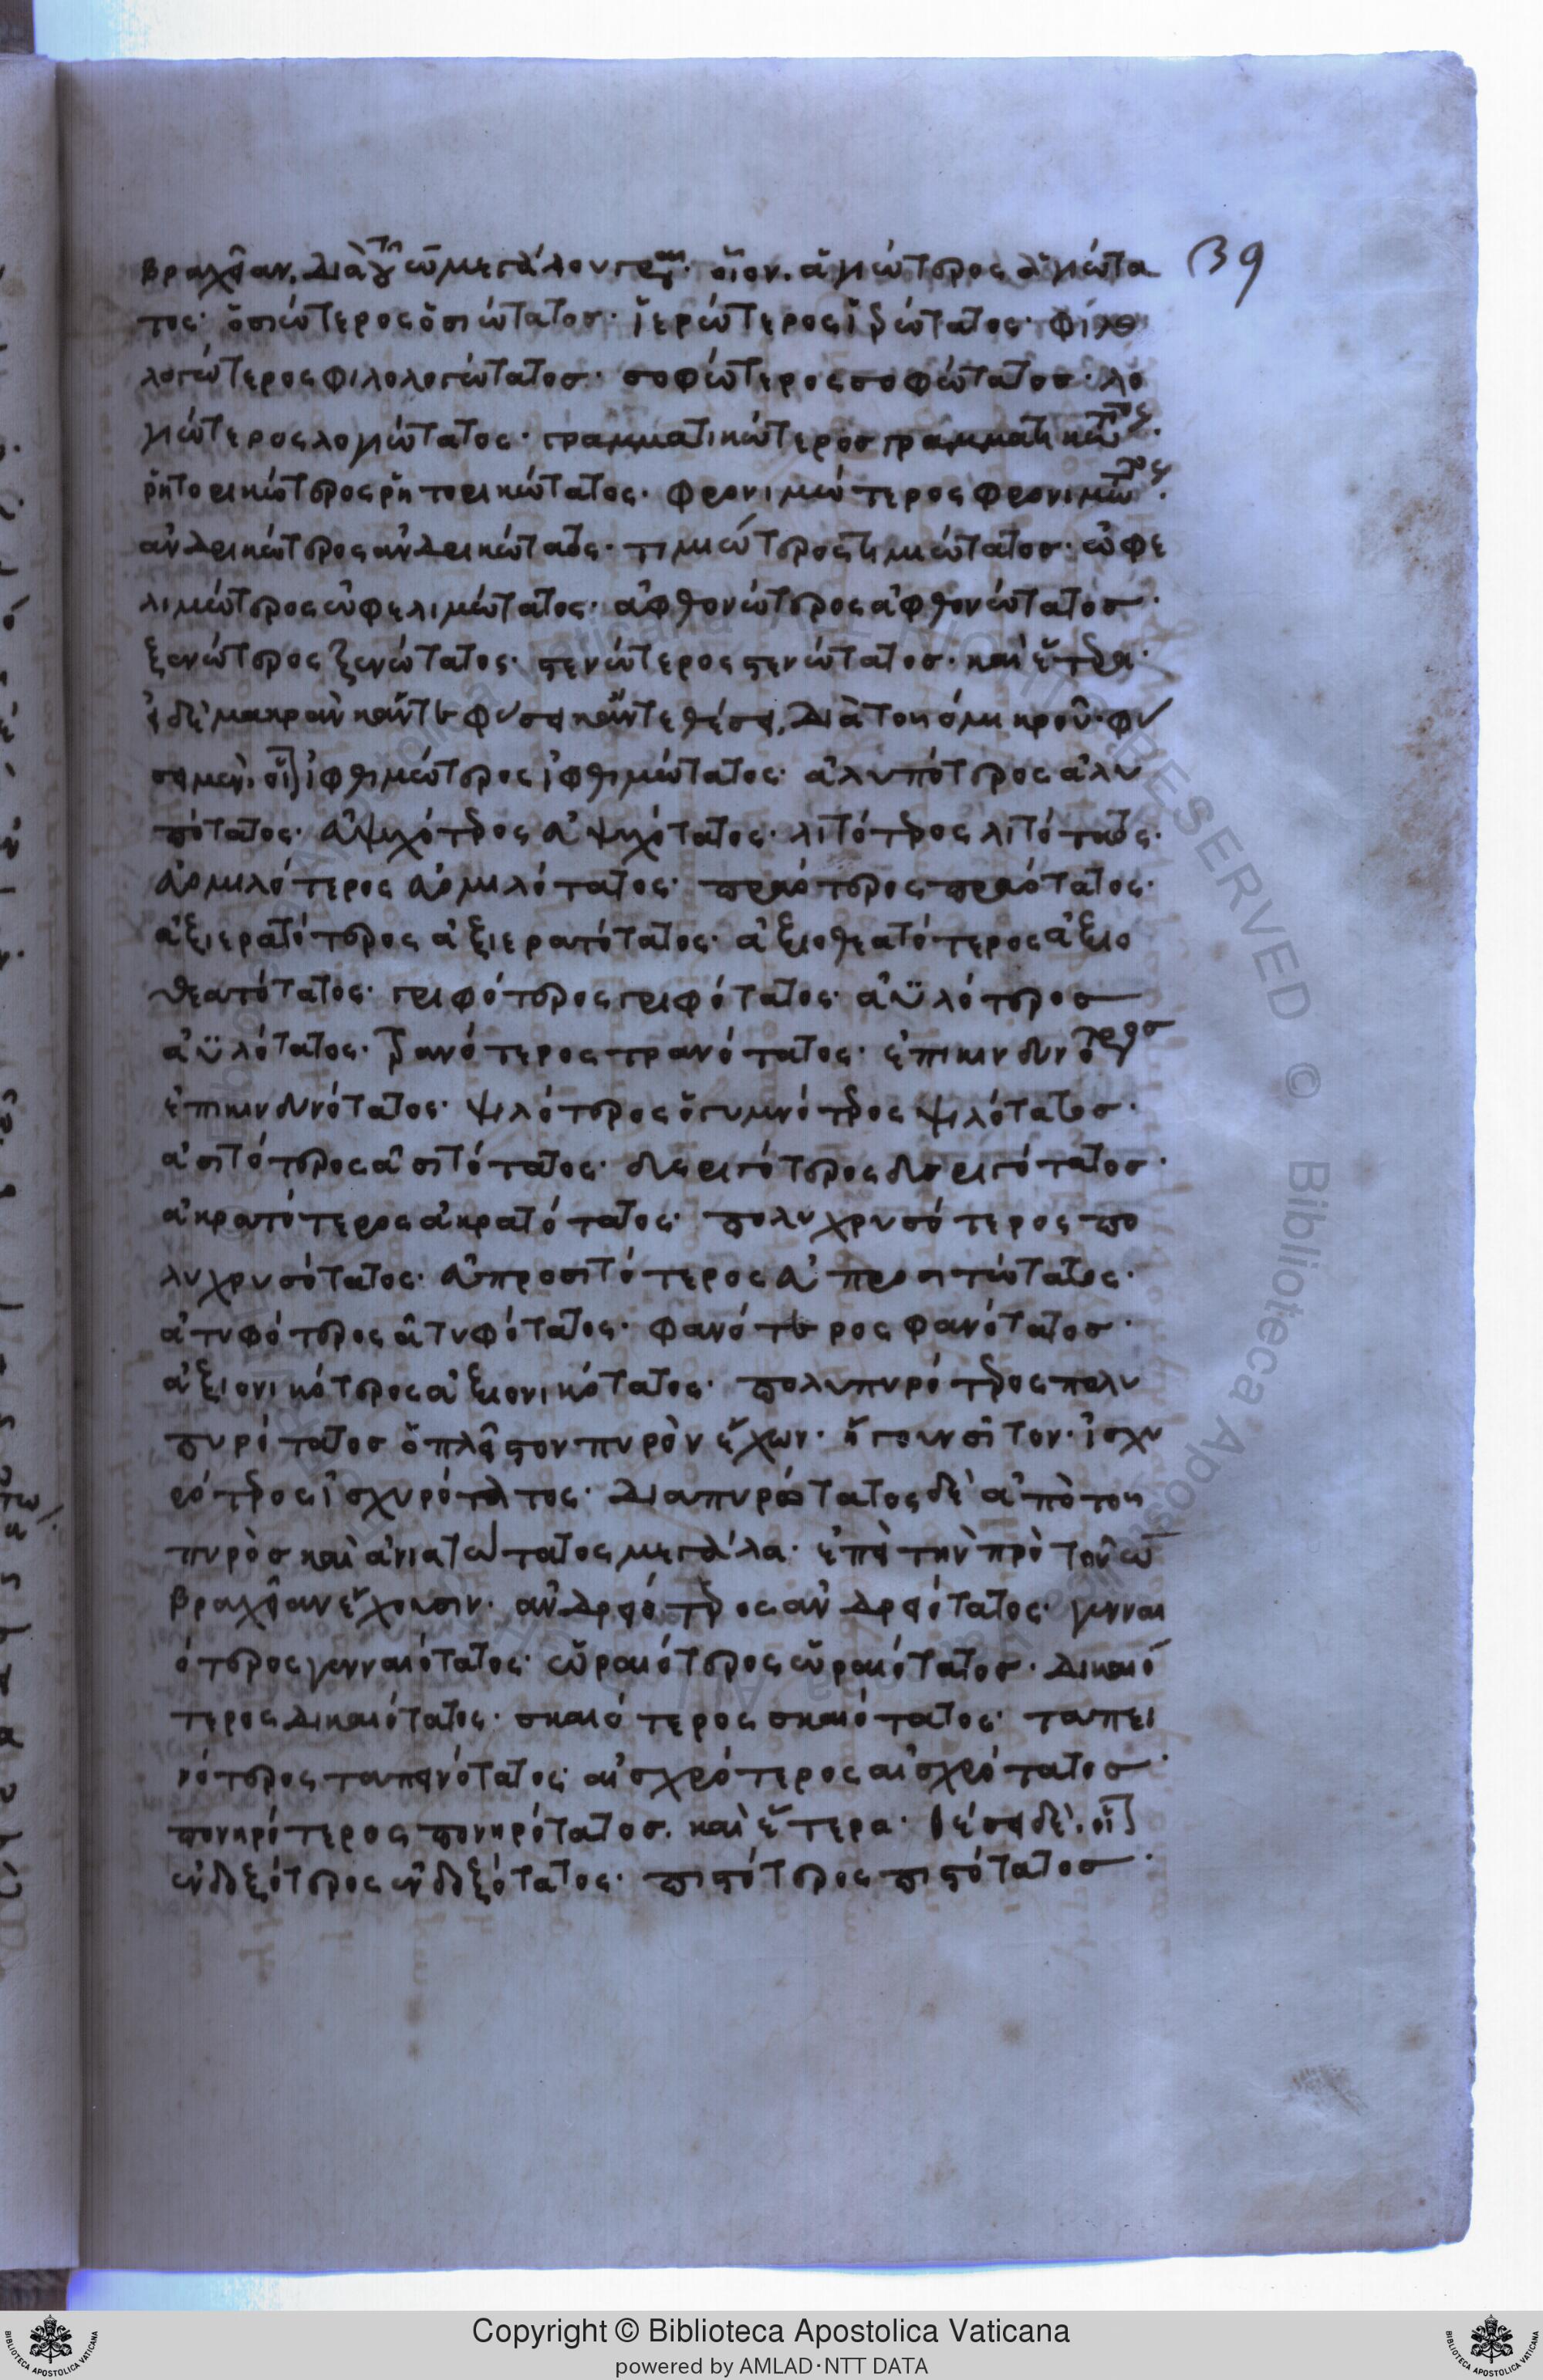 βραχεῖαν, διὰ τοῦ ω μεγάλου γράφεται· οἷον. ἁγιώτερος ἁγιώτα 39
τος· ὁσιώτερος ὁσιώτατος· ἱερώτερος ἱερώτατος· φιλο
λογώτερος φιλολογώτατος· σοφώτερος σοφώτατος· λο
γιώτερος λογιώτατος· γραμματικώτερος γραμματικώτατος·
ῥητορικώτερος ῥητορικώτατος· φρονιμώτερος φρονιμώτατος·
ἀνδρικώτερος ἀνδρικώτατος· τιμιώτερος τιμιώτατος· ὠφε
λιμώτερος ὠφελιμώτατος· ἀφθονώτερος ἀφθονώτατος·
ξενώτερος ξενώτατος· στενώτερος στενώτατος· καὶ ἕτερα·
εἰ δὲ μακρὰν κἄν τε φύσει κἄν τε θέσει, διὰ τοῦ ο μικροῦ· φύ
σει μὲν, οἷον ἰφθιμώτερος ἰφθιμώτατος· ἀλυπότερος ἀλυ
πότατος· ἀψυχότερος ἀψυχότατος· λιτότερος λιτότατος·
πραότερος πραότατος·
ἀξιερατότερος ἀξιερατότατος· ἀξιοθεατότερος ἀξιο
θεατότατος· γριφότερος γριφότατος· ἀϋλότερος
ἀϋλότατος· τρανότερος τρανότατος· ἐπικινδυνότερος
ἐπικινδυνότατος· ψιλότερος ὁ γυμνότερος ψιλότατος·
ἀσιτότερος ἀσιτότατος· δυσριγότερος δυσριγότατος·
ἀκρατότερος ἀκρατότατος· πολυχρυσότερος πο
λυχρυσότατος· ἀπροσιτότερος ἀπροσιτώτατος·
ἀτυφότερος ἀτυφότατος· φανότερος φανότατος·
ἀξιονικότερος ἀξιονικότατος· πολυπυρότερος πολυ
πυρότατος ὁ πλεῖστον πυρὸν ἔχων· ἤγουν σῖτον· ἰσχυ
ρότερος ἰσχυρότατος· διαπυρώτατος δὲ ἀπὸ τοῦ
πυρὸς καὶ ἀνιατώτατος μεγάλα· ἐπεὶ τὴν πρὸ τοῦ ω
βραχεῖαν ἔχουσιν· ἀνδρειότερος ἀνδρειότατος· γενναι
ότερος γενναιότατος· ὡραιότερος ὡραιότατος· δικαιό
τερος δικαιότατος· σκαιότερος σκαιότατος· ταπει
νότερος ταπεινότατος· αἰσχρότερος αἰσχρότατος·
πονηρότερος πονηρότατος. καὶ ἕτερα· θέσει δὲ. οἷον
ἐνδοξότερος ἐνδοξότατος· πιστότερος πιστότατος·
Copyright © Biblioteca Apostolica Vaticana
powered by AMLAD·NTT DATA